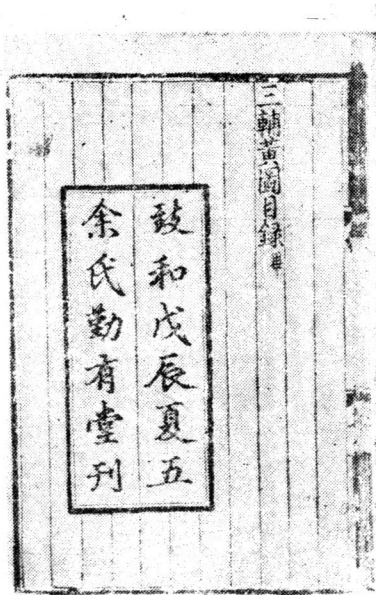 三輔黃圖目録畢
致和戊辰夏五
余氏勤有堂刊